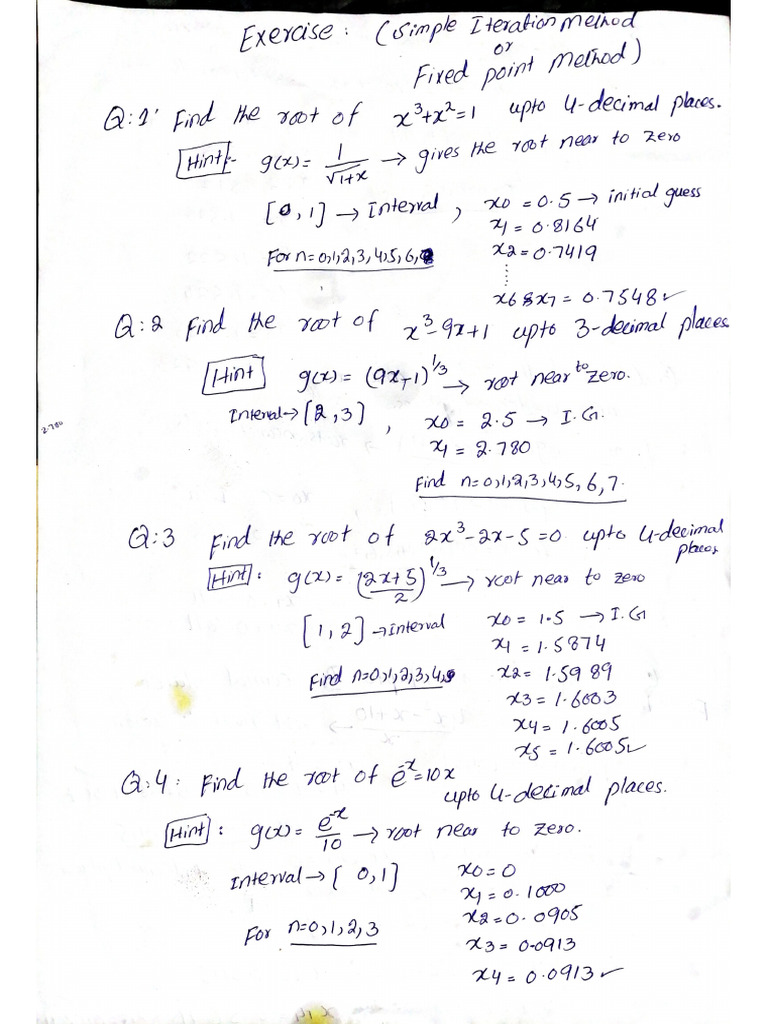 Exercise : (Simple Iteration Method
or
Fixed point Method)
Q:1' Find the root of x³+x²=1 upto 4-decimal places.
Hint:- g(x)= 1/√1+x → gives the root near to zero
[0,1] → Interval , x0 = 0.5 → initial guess
x1 = 0.8164
For n=0,1,2,3,4,5,6, x2 = 0.7419
⋮
x6 & x7 = 0.7548✓
Q:2 Find the root of x³-9x+1 upto 3-decimal places
Hint g(x)= (9x-1)^1/3 → root near to zero.
Interval→ [2,3] , x0 = 2.5 → I.G.
2.780
x1 = 2.780
Find n=0,1,2,3,4,5,6,7.
Q:3 Find the root of 2x³-2x-5=0 upto 4-decimal
places
Hint : g(x)= (2x+5/2)^1/3 → root near to zero
[1,2]→interval x0 = 1.5 → I.G
x1 = 1.5874
Find n=0,1,2,3,4, x2= 1.5989
x3 = 1.6003
x4 = 1.6005
x5 = 1.6005✓
Q:4: Find the root of e^-x=10x
upto 4-decimal places.
Hint : g(x)= e^-x/10 → root near to zero.
Interval→[0,1] x0=0
x1= 0.1000
For n=0,1,2,3 x2= 0.0905
x3 = 0.0913
x4 = 0.0913✓